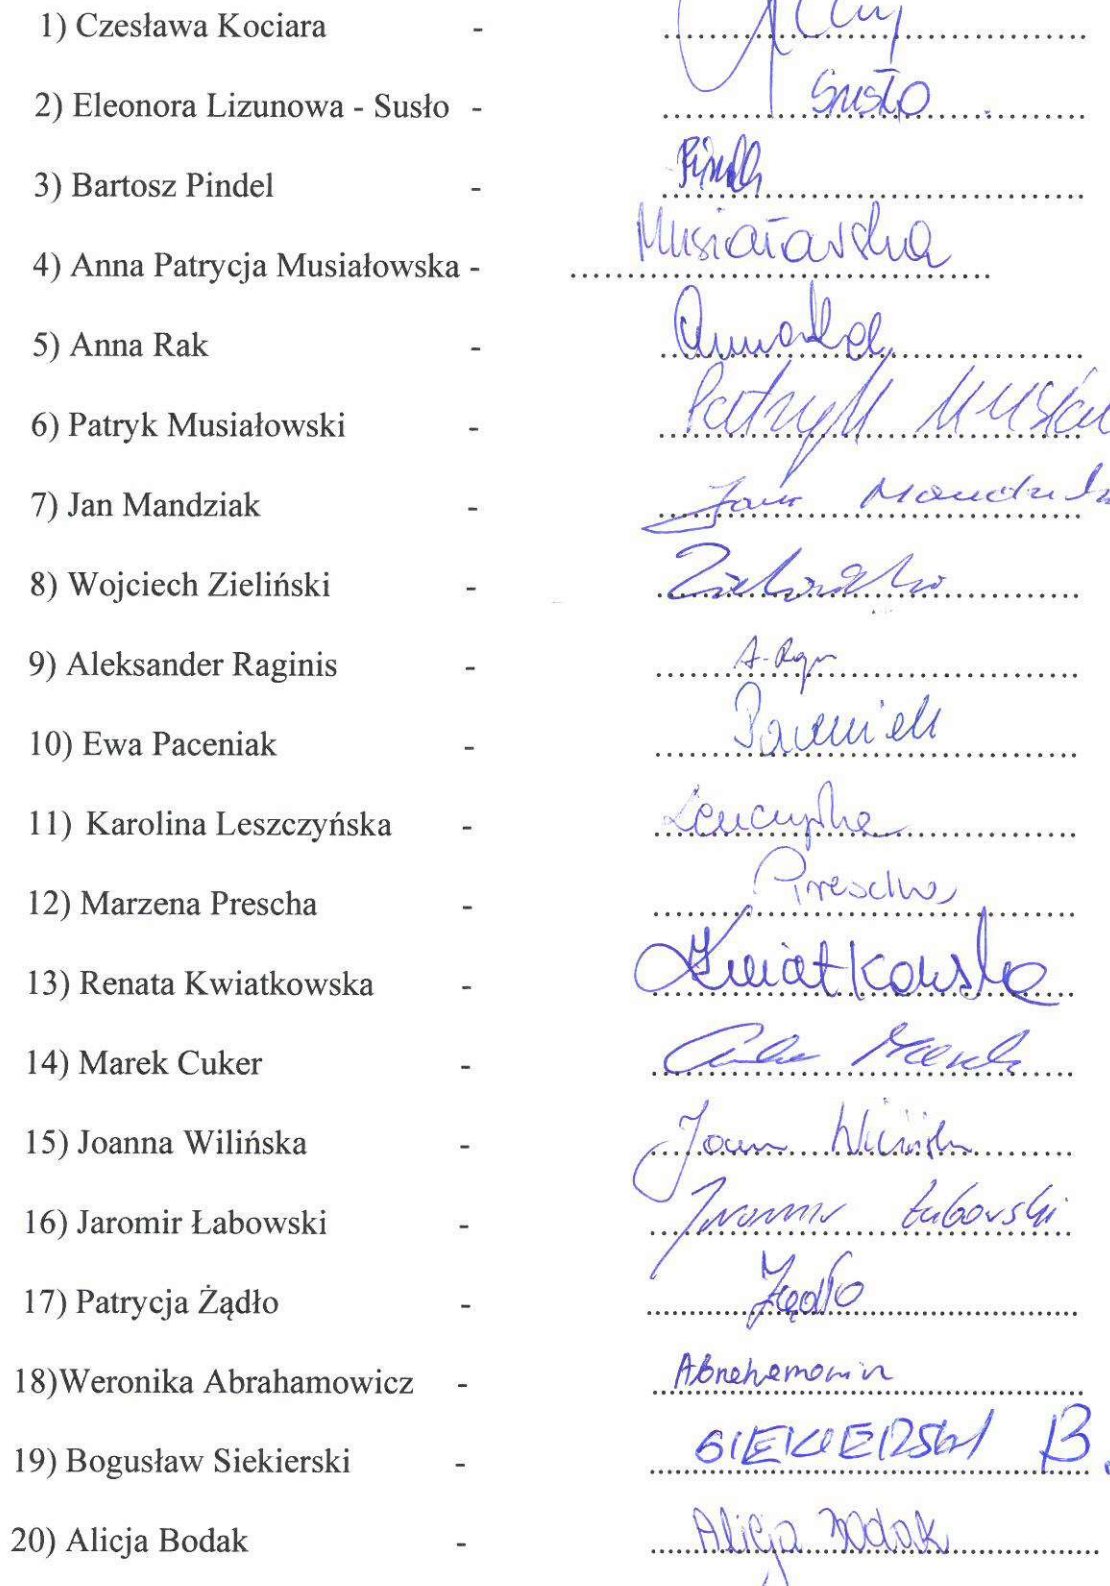 1) Czesława Kociara -
2) Eleonora Lizunowa - Susło - Susło
3) Bartosz Pindel - Pindel
4) Anna Patrycja Musiałowska - Musiałowska
5) Anna Rak - Anna Rak
6) Patryk Musiałowski - Patryk
7) Jan Mandziak - Jan Mandziak
8) Wojciech Zieliński - Zieliński
9) Aleksander Raginis - A.
10) Ewa Paceniak - Paceniak
11) Karolina Leszczyńska -
12) Marzena Prescha - Prescha
13) Renata Kwiatkowska - Kwiatkowska
14) Marek Cuker - Cuker Marek
15) Joanna Wilińska - Joanna Wilińska
16) Jaromir Łabowski - Jaromir Łabowski
17) Patrycja Żądło - Żądło
18)Weronika Abrahamowicz - Abrahamowicz
19) Bogusław Siekierski - SIEKIERSKI B.
20) Alicja Bodak - Alicja Bodak